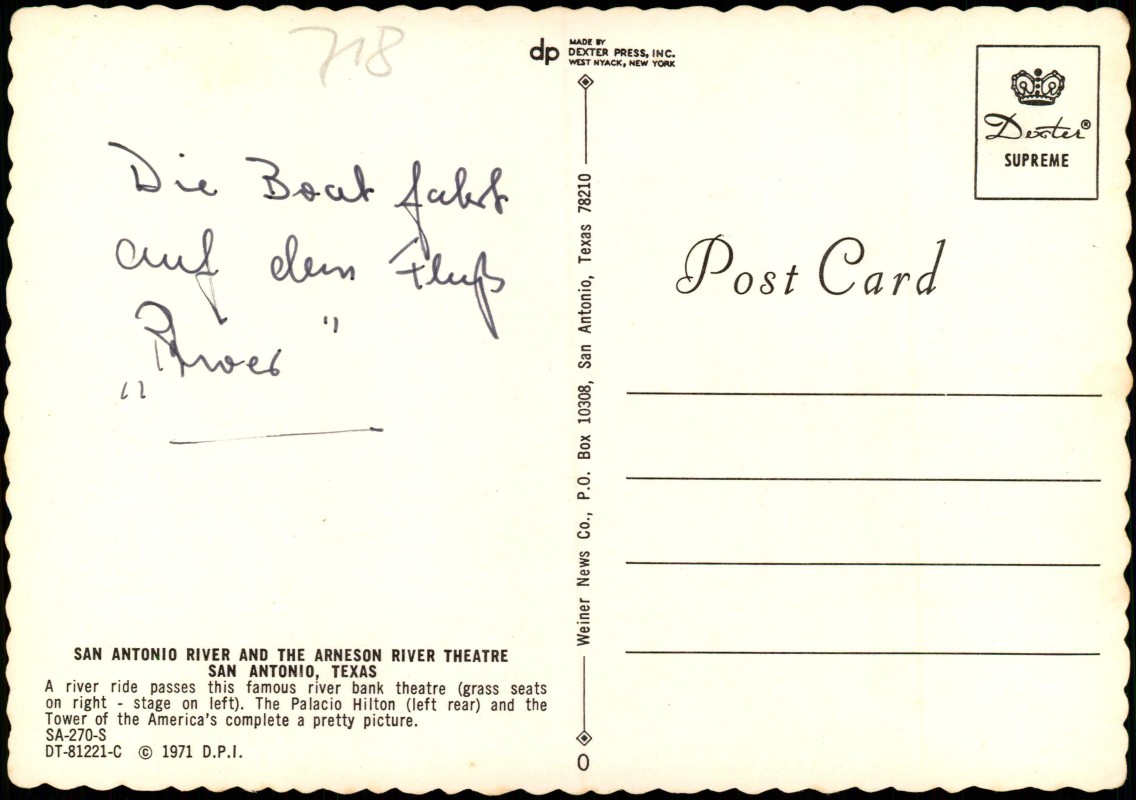 718
Die Boat fahrt
auf dem Fluß
„River"
SAN ANTONIO RIVER AND THE ARNESON RIVER THEATRE
SAN ANTONIO, TEXAS
A river ride passes this famous river bank theatre (grass seats
on right - stage on left). The Palacio Hilton (left rear) and the
Tower of the America's complete a pretty picture.
SA-270-S
DT-81221-C © 1971 D.P.I.
dp
MADE BY
DEXTER PRESS, INC.
WEST NYACK, NEW YORK
Weiner News Co., P.O. Box 10308, San Antonio, Texas 78210
0
Dexter®
SUPREME
Post Card